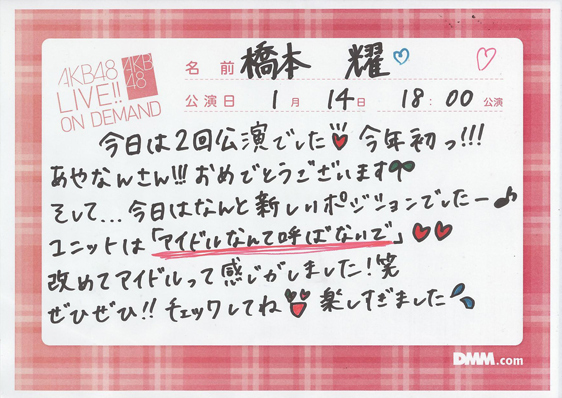 AKB48
LIVE!!
ON DEMAND
AKB
48
名前 橋本 耀
公演日 1月 14日 18:00 公演
今日は2回公演でした 今年初っ!!!
あやなんさん!!! おめでとうございます
そして...今日はなんと新しいポジションでしたー♪
ユニットは「アイドルなんて呼ばないで」
改めてアイドルって感じがしました!笑
ぜひぜひ!! チェックしてね 楽しすぎました
DMM.com